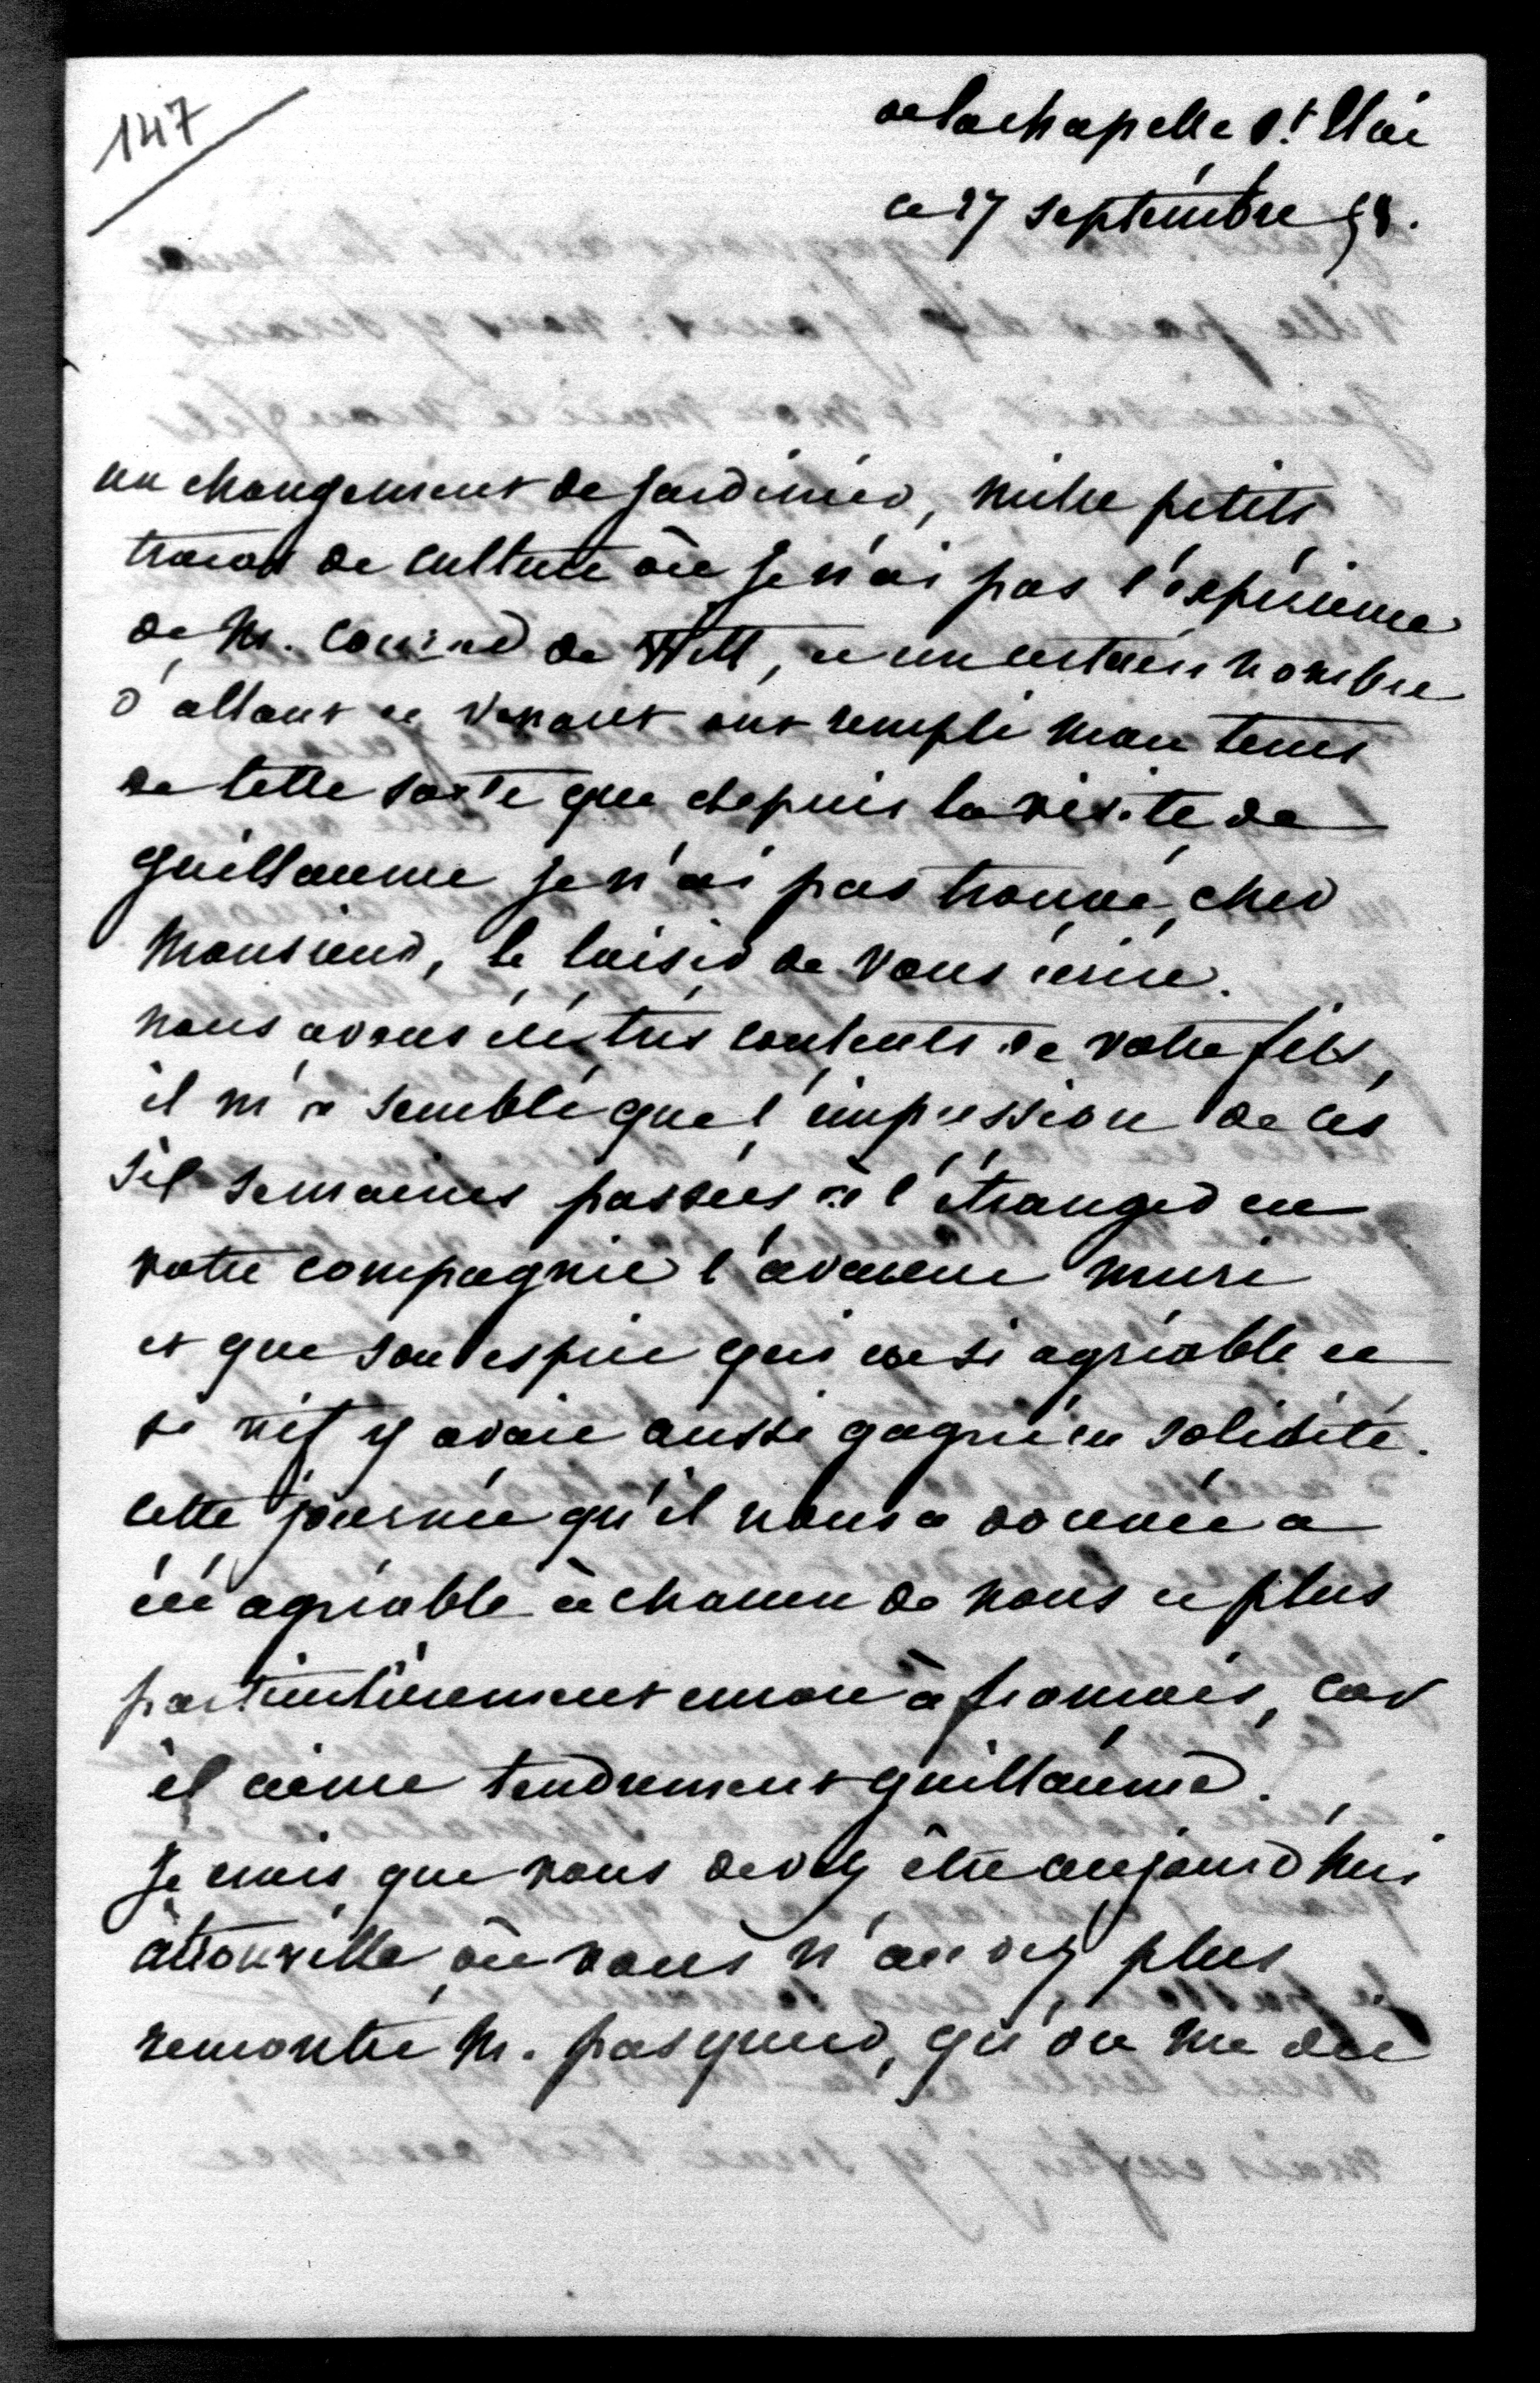 147
de la chapelle St Mai
ce 27 septembre 58.
un changement de jardinier, mille petits
tracas de culture où je n'ai pas l'expérience
de M. Conrad de Witt, et un certain nombre
d'allant et venant ont rempli mon tems
de telle sorte que depuis la visite de
guillaume je n'ai pas trouvé, cher
Monsieur, le loisir de vous écrire.
nous avons été très contents de votre fils,
il m'a semblé que l'impression de ces
six semaines passées à l'étranger en
votre compagnie l'avaient muri
et que son esprit qui est si agréable et
si vif y avait aussi gagné en solidité.
cette journée qu'il nous a donnée a
été agréable à chacun de nous et plus
particulièrement encore à françois, car
il aime tendrement guillaume.
Je crois que vous devez être aujourd'hui
à trouville où vous n'aurez plus
rencontré M. pasquier, qu'on me dit